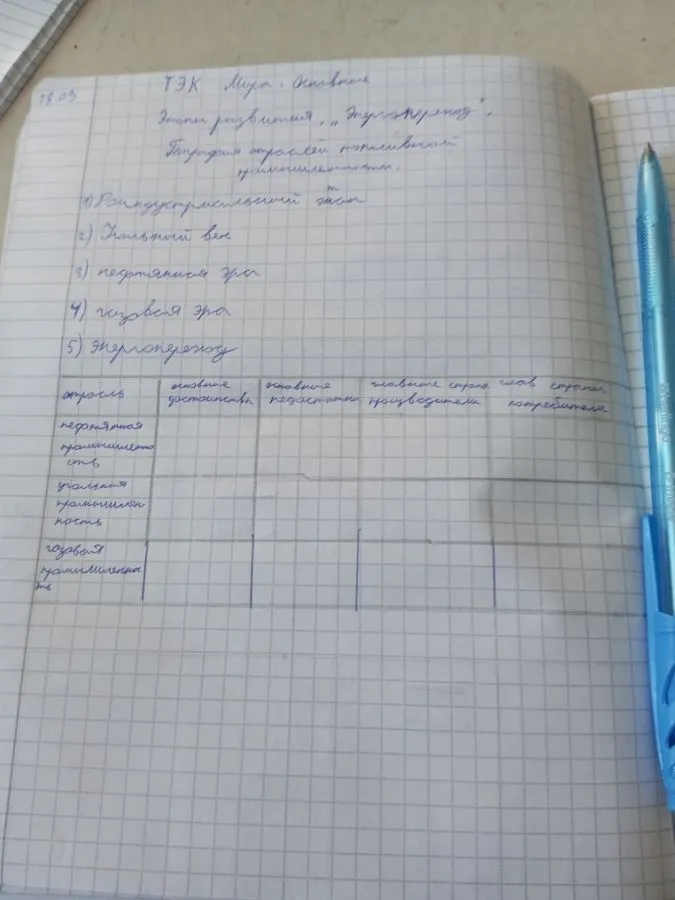 18.03
ТЭК Мира: Основные
Этапы развития, „Энергопереход".
География отраслей топливной
промышленности.
1) Доиндустриальный этап
2) Угольный век
3) нефтяная эра
4) газовая эра
5) энергопереход
отрасль
основные
достоинства
основные
недостатки
главные страны
производители
глав страны
потребители
нефтяная
промышленно
сть
угольная
промышлен
ность
газовая
промышленнос
ть